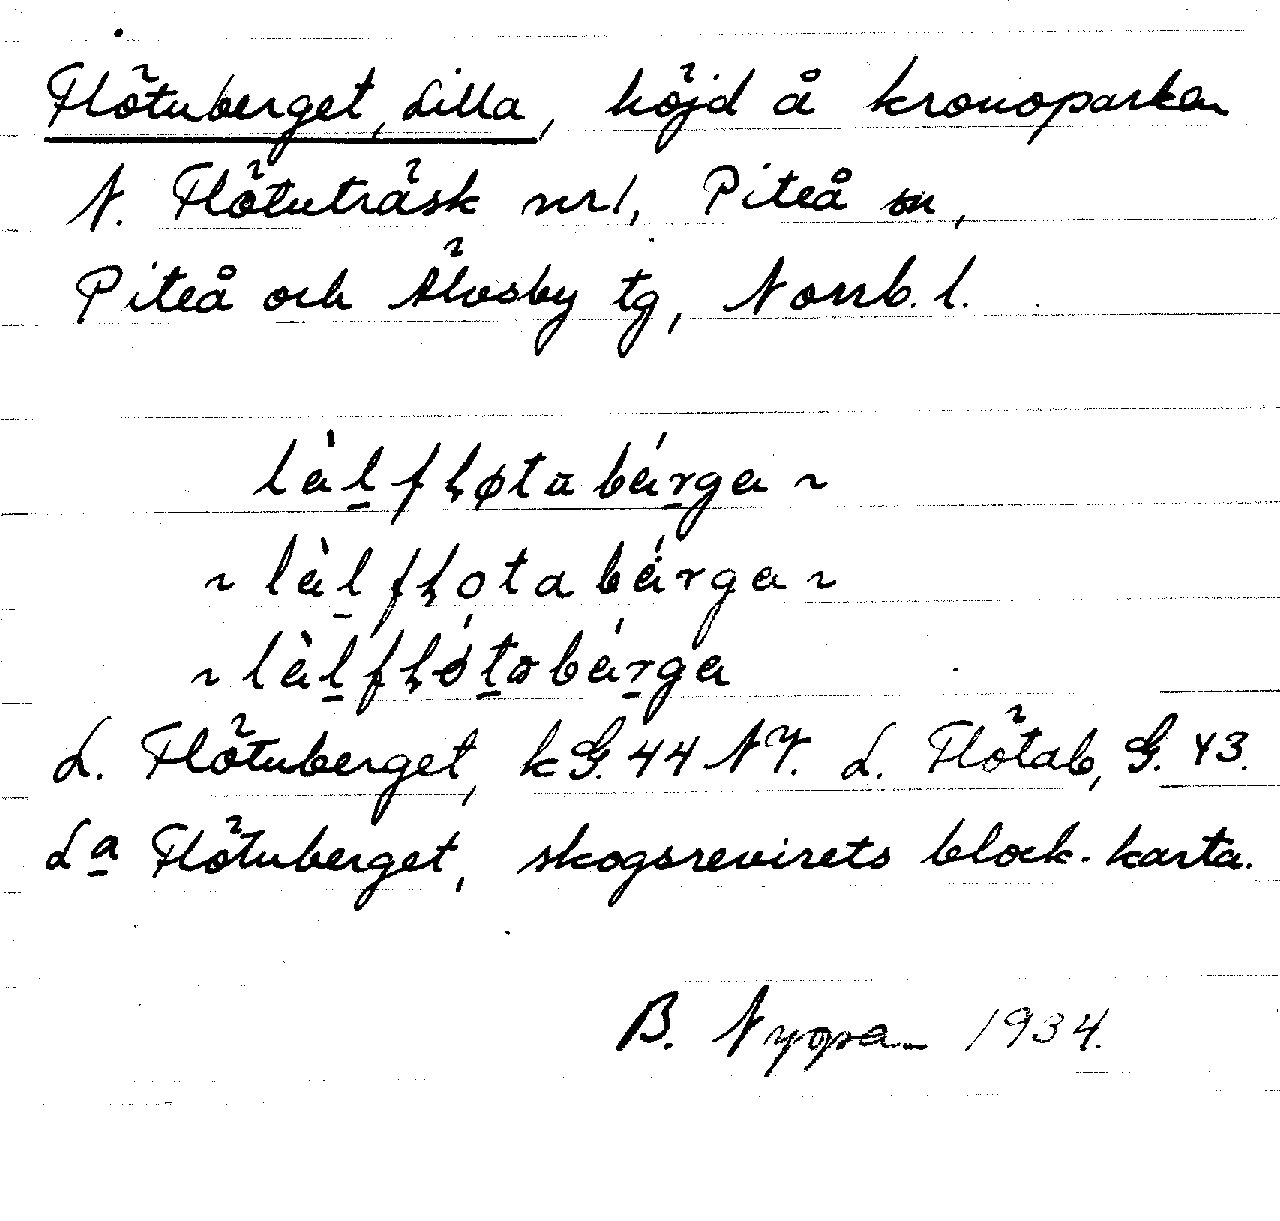 Flötuberget, Lilla, höjd å kronoparken
N. Flötuträsk nr 1, Piteå sn,
Piteå och Älvsby tg, Norrb. l.
làlfløtabárga ~
~ làlflotabárga ~
~ làlflǿtabárga
L. Flötuberget, kG. 44 NV. L. Flötab, G. 43.
La Flötuberget, skogsrevirets block-karta.
B. 1934.